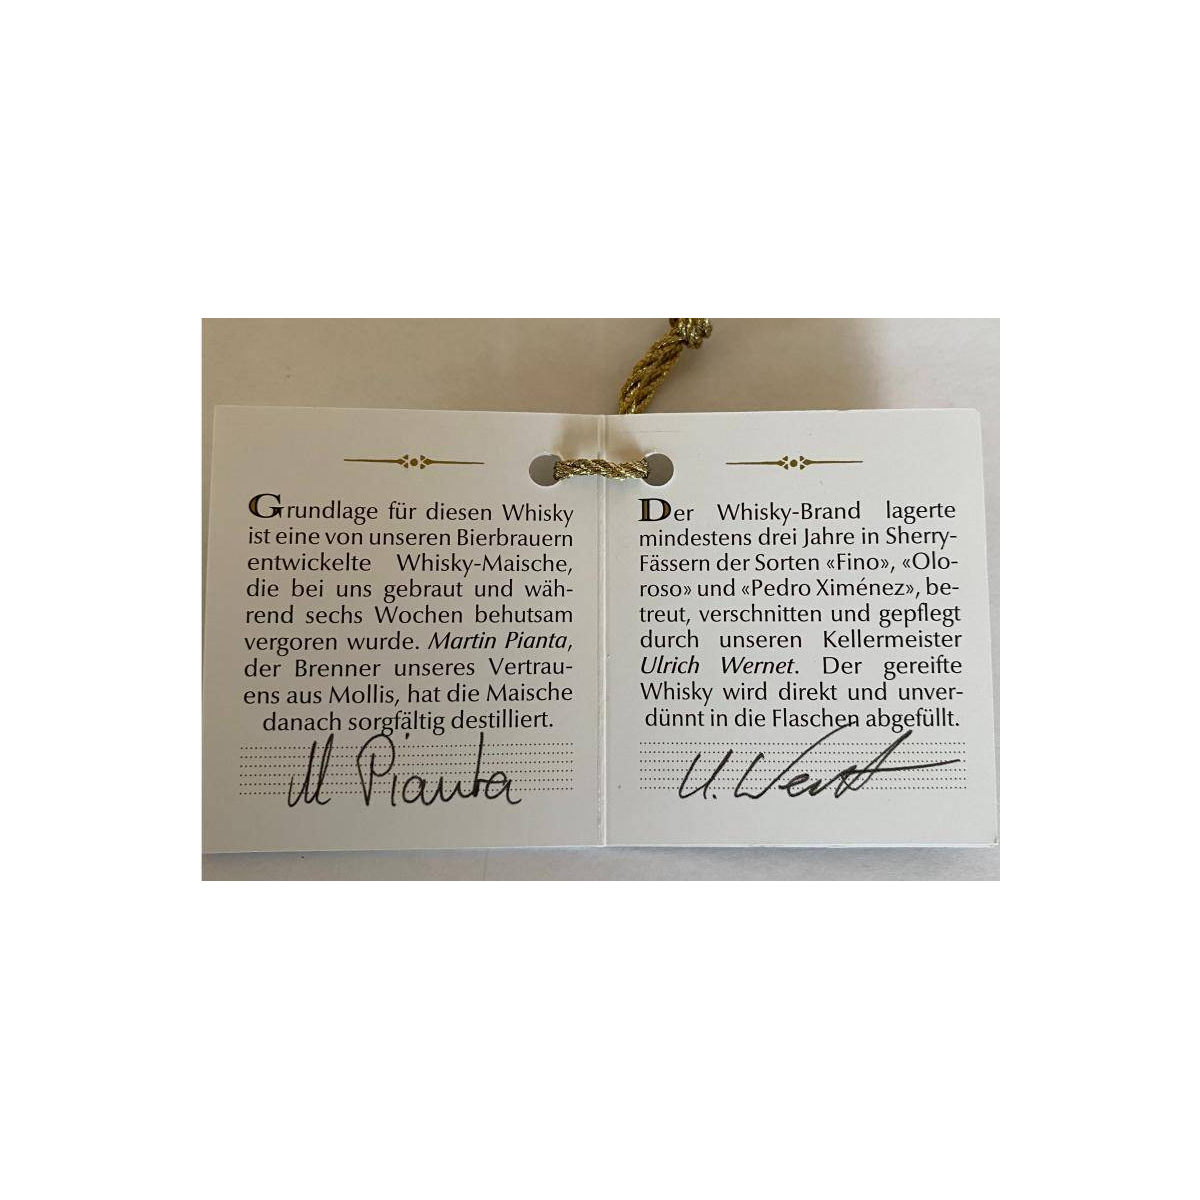 Grundlage für diesen Whisky
ist eine von unseren Bierbrauern
entwickelte Whisky-Maische,
die bei uns gebraut und wäh-
rend sechs Wochen behutsam
vergoren wurde. Martin Pianta,
der Brenner unseres Vertrau-
ens aus Mollis, hat die Maische
danach sorgfältig destilliert.
M Pianta
Der Whisky-Brand lagerte
mindestens drei Jahre in Sherry-
Fässern der Sorten «Fino», «Olo-
roso» und «Pedro Ximénez», be-
treut, verschnitten und gepflegt
durch unseren Kellermeister
Ulrich Wernet. Der gereifte
Whisky wird direkt und unver-
dünnt in die Flaschen abgefüllt.
U. Wernet